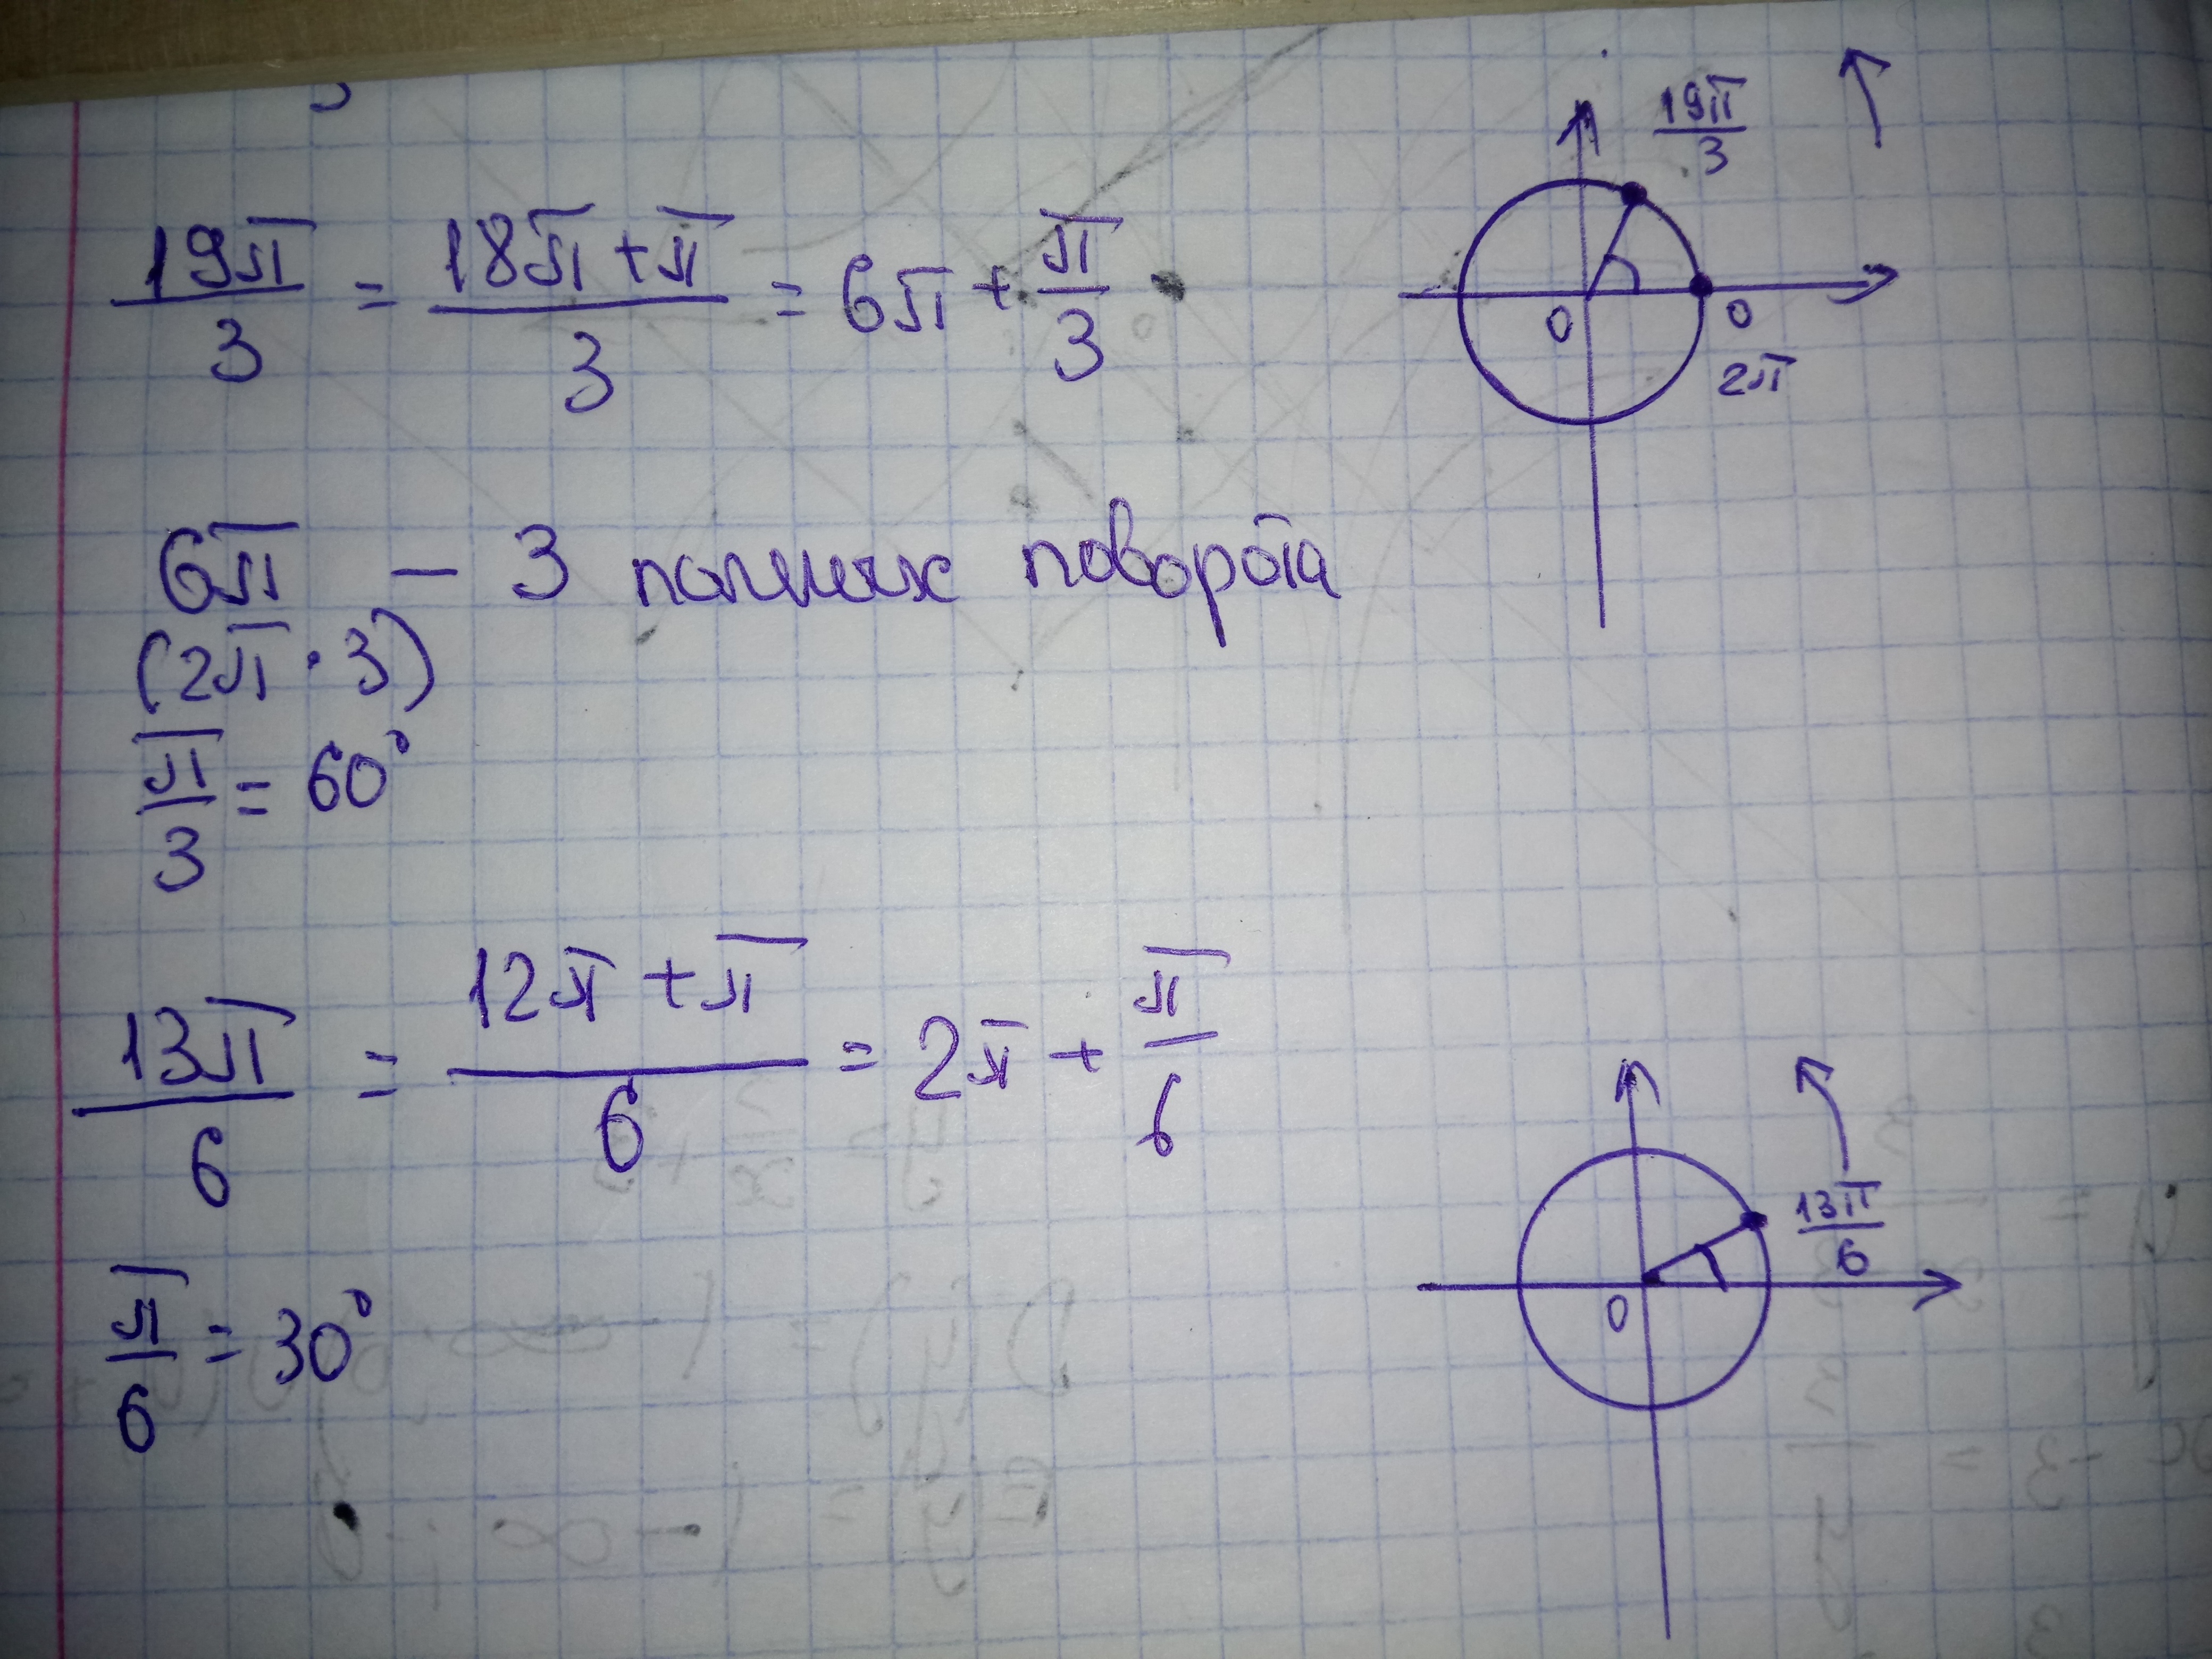 19π/3 = (18π + π)/3 = 6π + π/3
19π/3
0 0
2π
6π — 3 полных поворота
(2π · 3)
π/3 = 60°
13π/6 = (12π + π)/6 = 2π + π/6
13π/6
0
π/6 = 30°